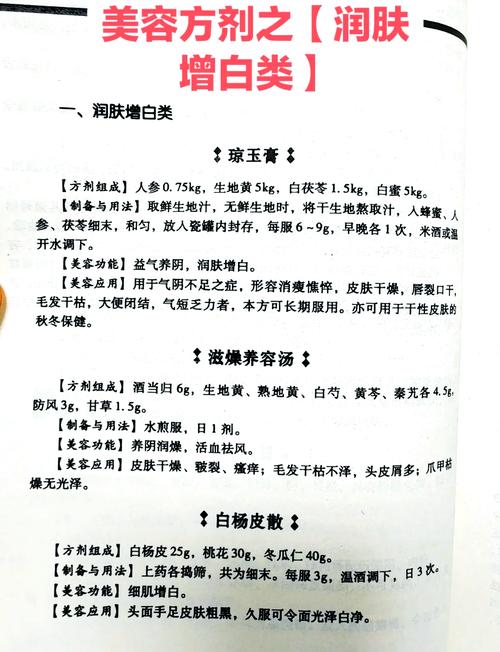 美容方剂之【润肤
增白类】
一、润肤增白类
琼玉膏
【方剂组成】人参0.75kg，生地黄5kg，白茯苓1.5kg，白蜜5kg。
【制备与用法】取鲜生地汁，无鲜生地时，将干生地熬取汁，人蜂蜜、人
参、茯苓细末，和匀，放人瓷罐内封存，每服6～9g，早晚各1次，米酒或温
开水调下。
【美容功能】益气养阴，润肤增白。
【美容应用】用于气阴不足之症，形容消瘦憔悴，皮肤干燥，唇裂口干，
毛发干枯，大便闭结，气短乏力者，本方可长期服用。亦可用于干性皮肤的
秋冬保健。
滋燥养容汤
【方剂组成】酒当归6g，生地黄、熟地黄、白芍、黄芩、秦艽各4.5g，
防风3g，甘草1.5g。
【制备与用法】水煎服，日1剂。
【美容功能】养阴润燥，活血祛风。
【美容应用】皮肤干燥、皲裂、瘙痒；毛发干枯不泽，头皮屑多；爪甲枯
燥无光泽。
白杨皮散
【方剂组成】白杨皮25g，桃花30g，冬瓜仁40g。
【制备与用法】上药各捣筛，共为细末。每服3g，温酒调下，日3次。
【美容功能】细肌增白。
【美容应用】头面手足皮肤粗黑，久服可令面光泽白净。